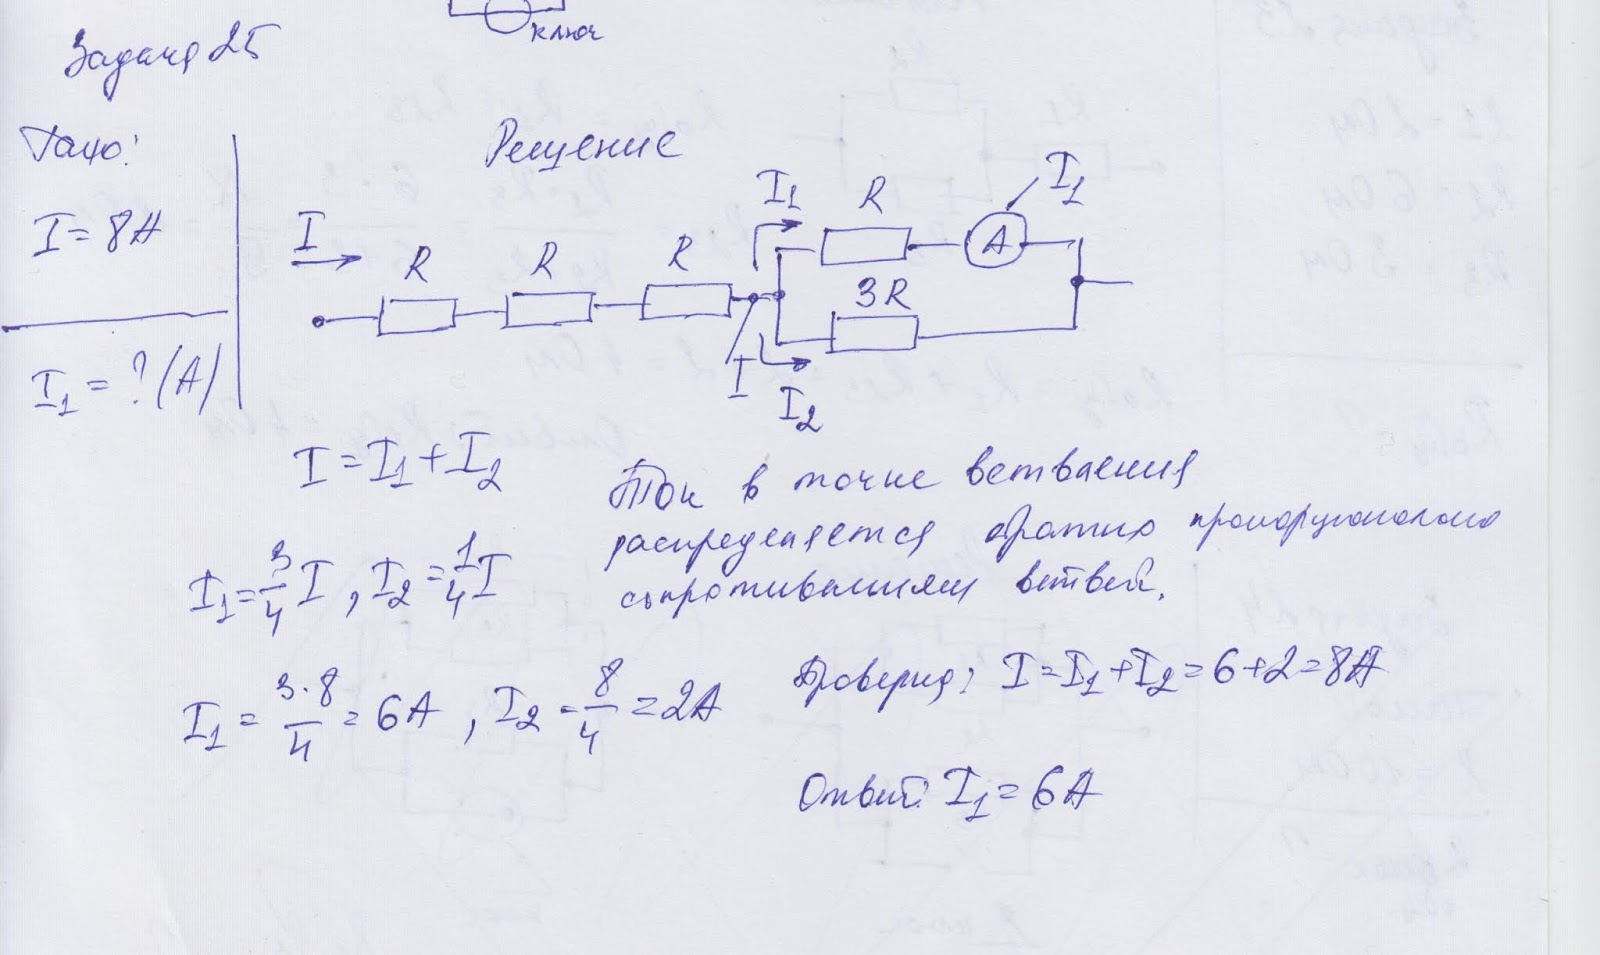 ключ
Задача 25
Дано:
Решение
I = 8A
I
R
R
R
I1
R
A
I1
3R
I
I2
I1 = ? (A)
I = I1 + I2
Ток в точке ветвления
распределяется обратно пропорционально
сопротивлениям ветвей.
I1 = 3/4 I , I2 = 1/4 I
I1 = 3·8/4 = 6A , I2 = 8/4 = 2A
I = I1 + I2 = 6 + 2 = 8A
Ответ: I1 = 6A